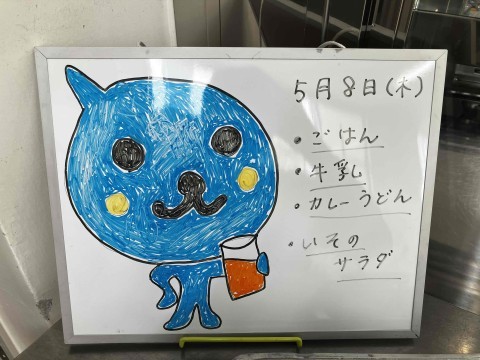 5月8日(木)
・ごはん
・牛乳
・カレーうどん
・いその
サラダ